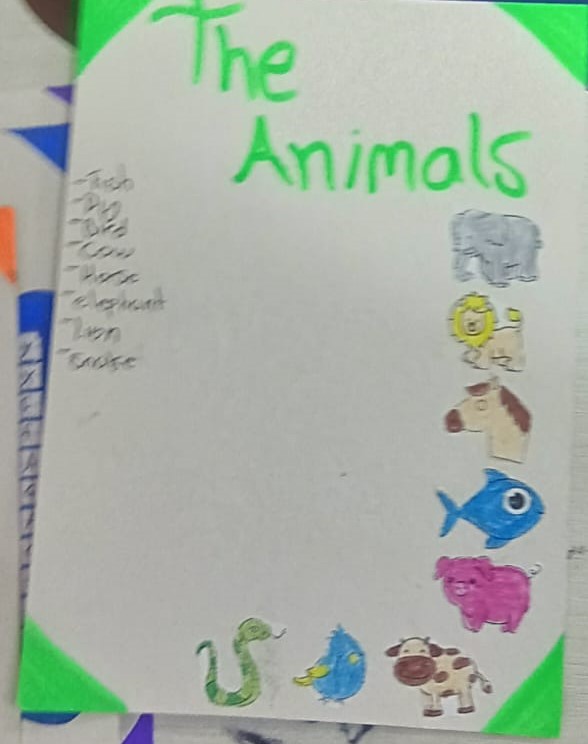 The
Animals
-Fish
-Pig
-Bird
-Cow
-Horse
-elephant
-Lion
-Snake